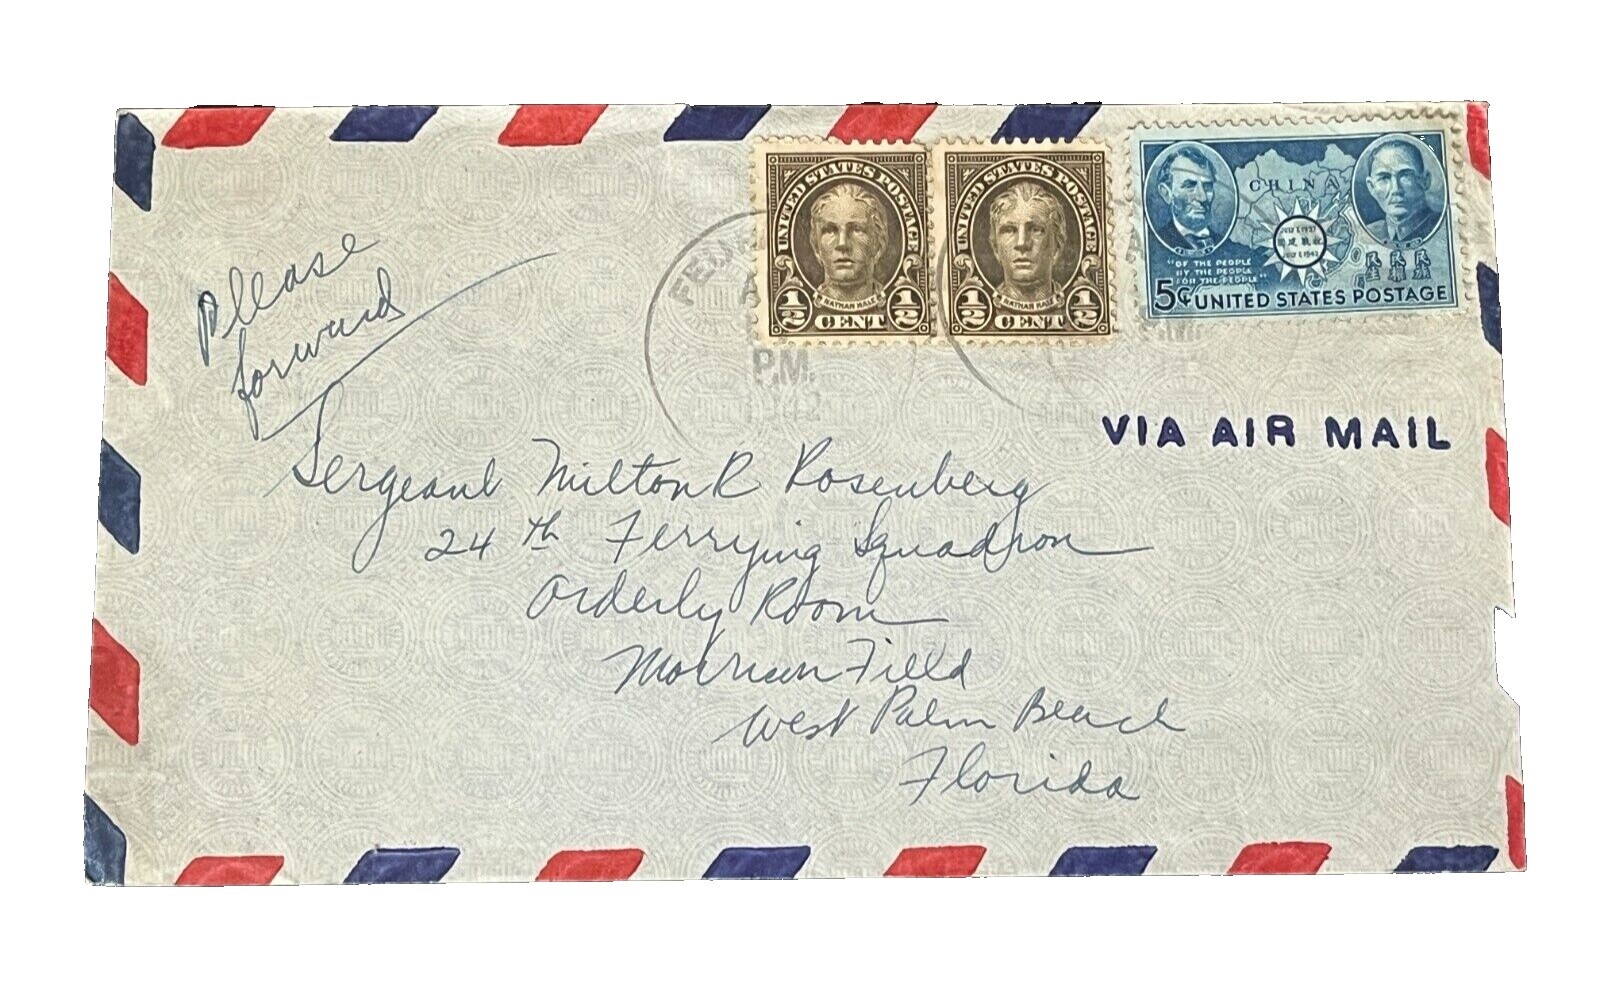 UNITED STATES POSTAGE
NATHAN HALE
1/2 CENT 1/2
UNITED STATES POSTAGE
NATHAN HALE
1/2 CENT 1/2
CHINA
JULY 7, 1937
JULY 7, 1942
"OF THE PEOPLE
BY THE PEOPLE
FOR THE PEOPLE"
民族 民權 民生
5¢ UNITED STATES POSTAGE
P.M.
1942
Please
forward
VIA AIR MAIL
Sergeant Milton R Rosenberg
24th Ferrying Squadron
Orderly Room
Morrison Field
West Palm Beach
Florida